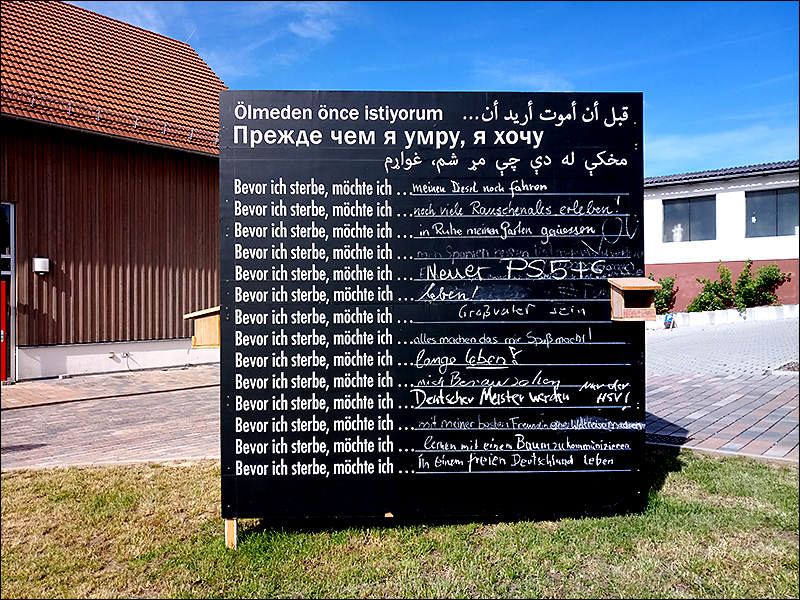 Ölmeden önce istiyorum
قبل أن أموت أريد أن...
Прежде чем я умру, я хочу
مخکې له دې چې مړ شم، غواړم
Bevor ich sterbe, möchte ich ... meinen Diesel noch fahren
Bevor ich sterbe, möchte ich ... noch viele Rauschenales erleben!
Bevor ich sterbe, möchte ich ... in Ruhe meinen Garten
Bevor ich sterbe, möchte ich ...
Bevor ich sterbe, möchte ich ... Neuer PS5+6
Bevor ich sterbe, möchte ich ... leben!
Bevor ich sterbe, möchte ich ... Großvater sein
Bevor ich sterbe, möchte ich ... alles machen das mir Spaß macht!
Bevor ich sterbe, möchte ich ... lange leben!
Bevor ich sterbe, möchte ich ... mich
Bevor ich sterbe, möchte ich ... Deutscher Meister werden nur der HSV!
Bevor ich sterbe, möchte ich ... mit meiner besten Freundin eine Weltreise machen
Bevor ich sterbe, möchte ich ... lernen mit einem Baum zu kommunizieren
Bevor ich sterbe, möchte ich ... In einem freien Deutschland leben